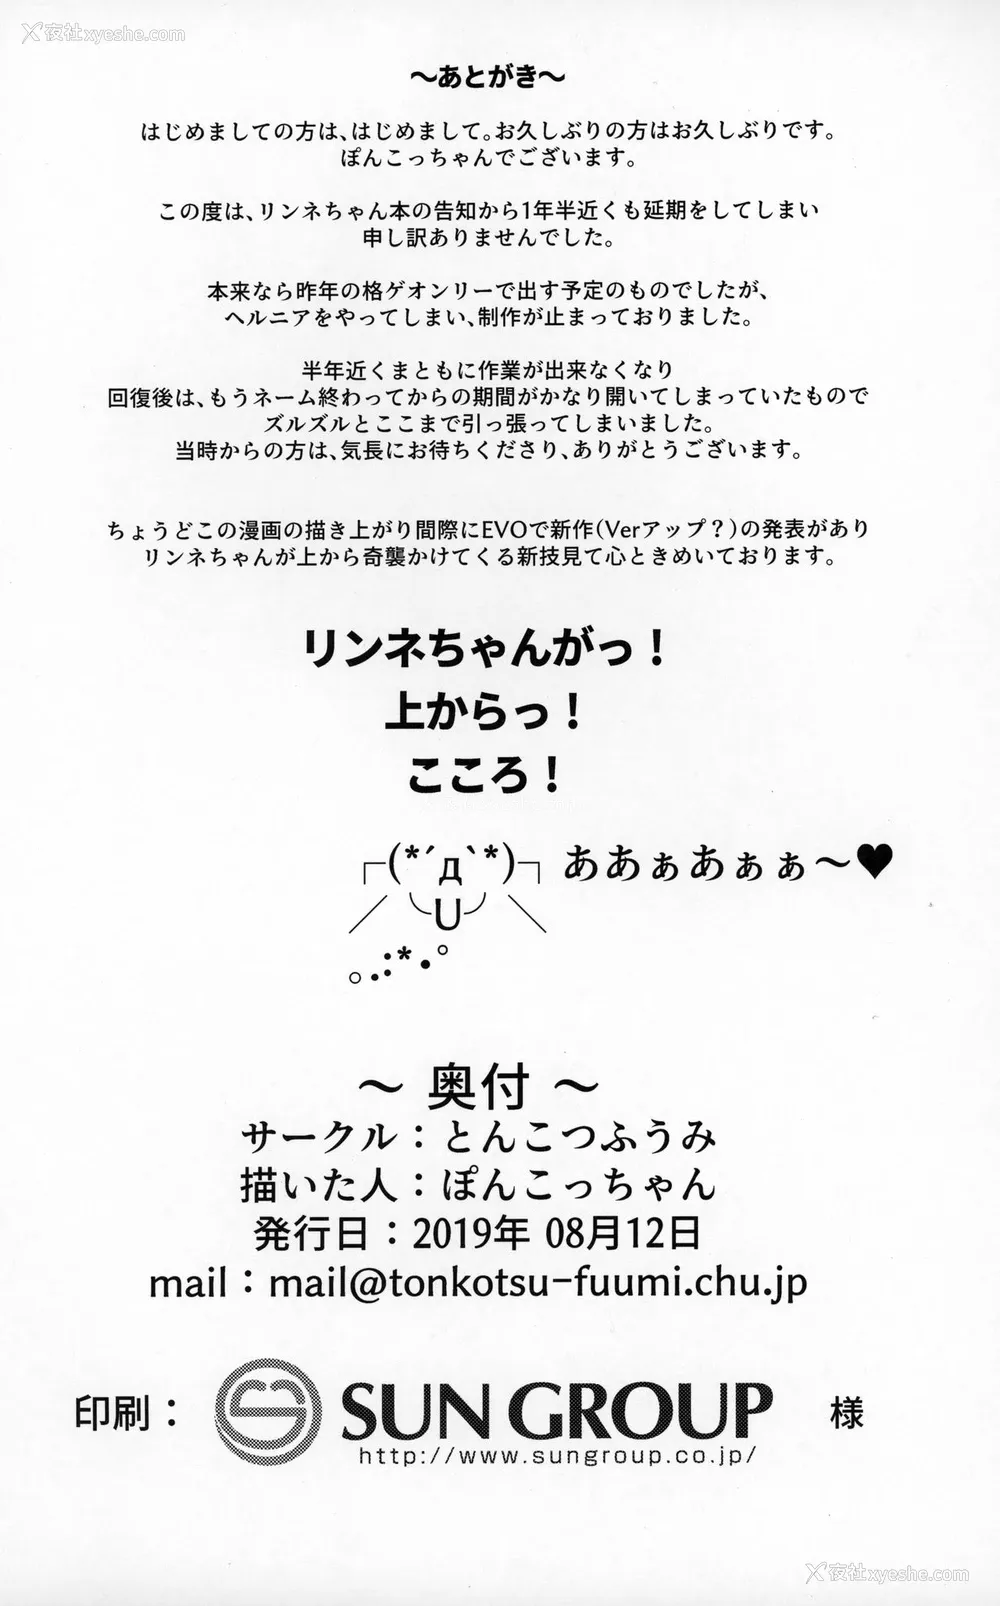 夜社xyeshe.com
～あとがき～
はじめましての方は、はじめまして。お久しぶりの方はお久しぶりです。
ぽんこっちゃんでございます。
この度は、リンネちゃん本の告知から1年半近くも延期をしてしまい
申し訳ありませんでした。
本来なら昨年の格ゲオンリーで出す予定のものでしたが、
ヘルニアをやってしまい、制作が止まっておりました。
半年近くまともに作業が出来なくなり
回復後は、もうネーム終わってからの期間がかなり開いてしまっていたもので
ズルズルとここまで引っ張ってしまいました。
当時からの方は、気長にお待ちくださり、ありがとうございます。
ちょうどこの漫画の描き上がり間際にEVOで新作(Verアップ？)の発表があり
リンネちゃんが上から奇襲かけてくる新技見て心ときめいております。
リンネちゃんがっ！
上からっ！
こころ！
┌(*´д`*)┐ああぁあぁぁ～♥
／╰U╯＼
｡.:*•°
～ 奥付 ～
サークル：とんこつふうみ
描いた人：ぽんこっちゃん
発行日：2019年 08月12日
mail：mail@tonkotsu-fuumi.chu.jp
印刷： SUN GROUP 様
http://www.sungroup.co.jp/
夜社xyeshe.com